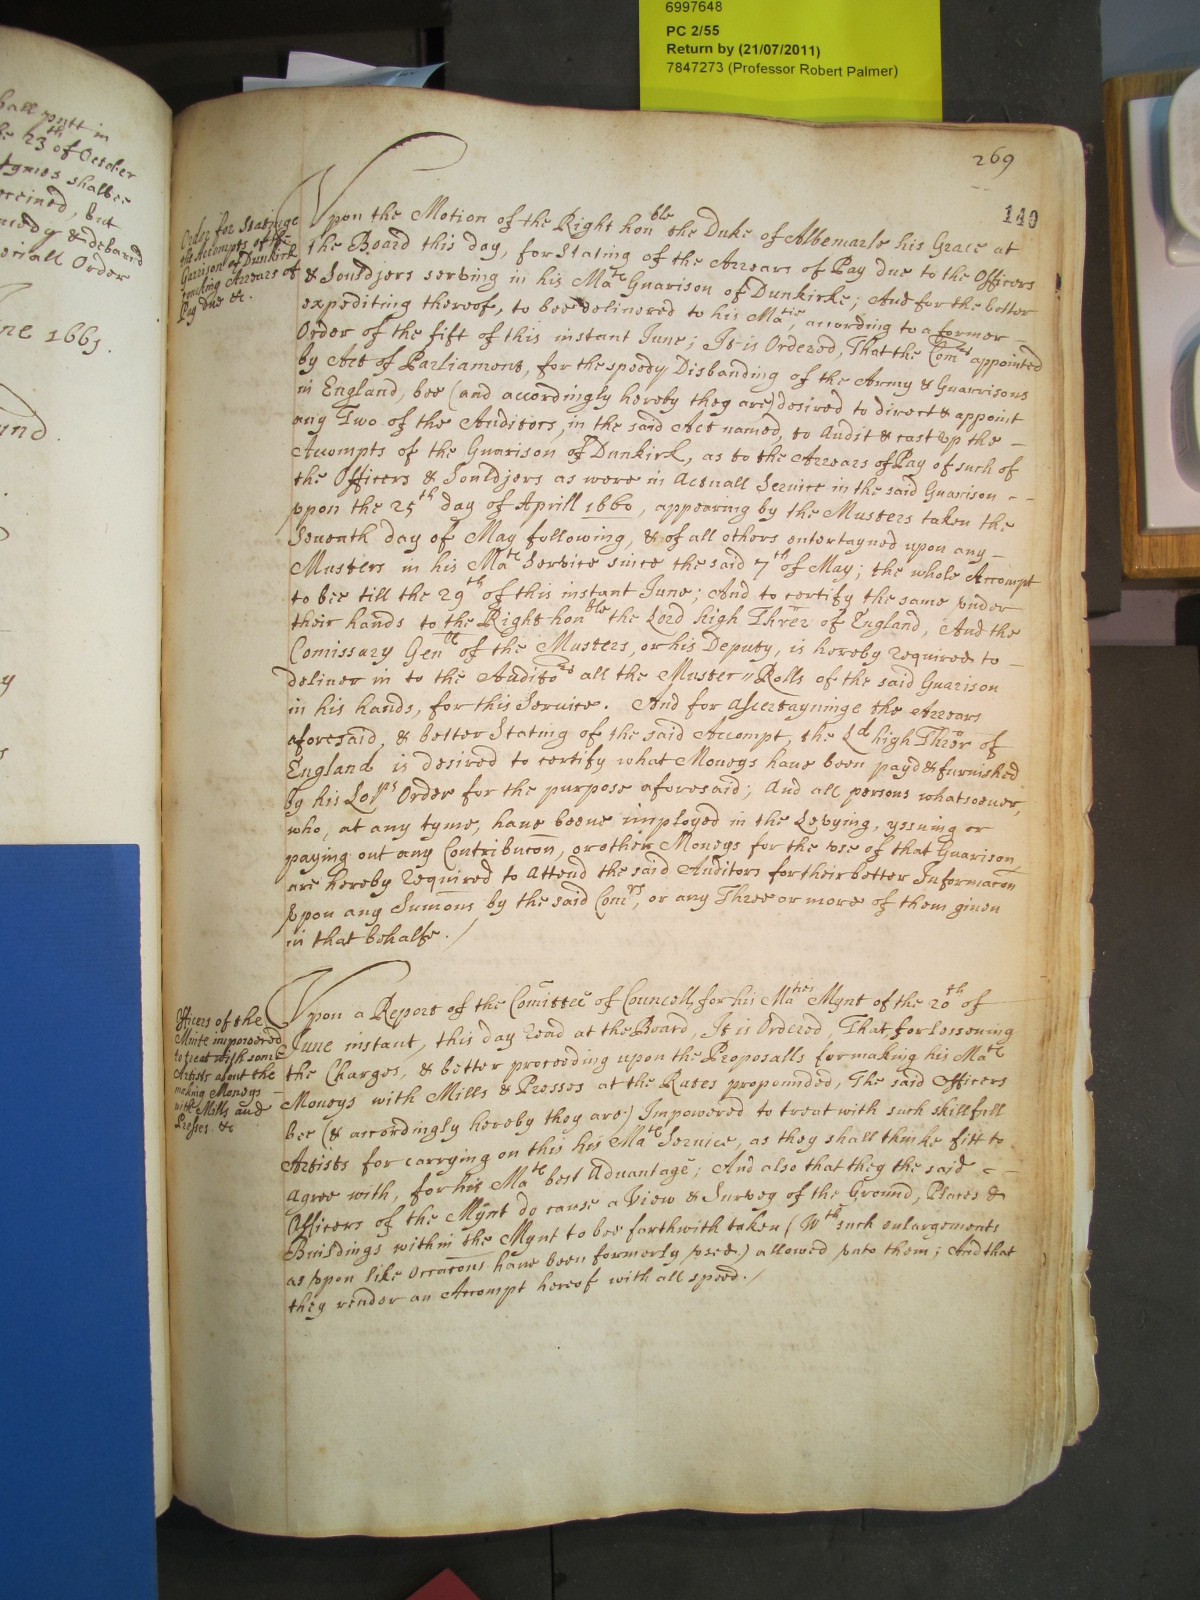 6997648
PC 2/55
Return by (21/07/2011)
7847273 (Professor Robert Palmer)
hall putt in
he 23th of October
shalbee
receined, but
& debarred
eciall Order
ne 1661.
und.
269
140
Order for Stateinge
the Accompts of the
Garrison of Dunkirk
touching Arrears of
Pay due &c.
Vpon the Motion of the Right honble the Duke of Albemarle his Grace at
the Board this day, for Stating of the Arrears of Pay due to the Officers
& Souldjers serving in his Mats Guarison of Dunkirke; And for the better
expediting thereof, to bee delivered to his Matie, according to a former
Order of the fift of this instant June; It is Ordered, That the Comrs appointed
by Act of Parliament, for the speedy Disbanding of the Army & Guarrisons
in England, bee (and accordingly hereby they are) desired to direct & appoint
any Two of the Auditors, in the said Act named, to Audit & cast vp the
Accompts of the Guarison of Dunkirk, as to the Arrears of Pay of such of
the Officers & Souldjers as were in Actuall Service in the said Guarison
vpon the 25th day of Aprill 1660, appearing by the Musters taken the
Seventh day of May following, & of all others entertayned upon any
Musters in his Mats Service since the said 7th of May; the whole Accompt
to bee till the 29th of this instant June; And to certify the same vnder
their hands to the Right honble the Lord high Threr of England, And the
Comissary Genll of the Musters, or his Deputy, is hereby required to
deliver in to the Auditors all the Muster Rolls of the said Guarison
in his hands, for this Service. And for Ascertayninge the Arrears
aforesaid, & better Stating of the said Accompt, the Ld high Threr of
England is desired to certify what Moneys have been payd & furnished
by his Lops Order for the purpose aforesaid; And all persons whatsoever,
who, at any tyme, have beene imployed in the Levying, yssuing or
paying out any Contribucon, or other Moneys for the vse of that Guarison,
are hereby required to attend the said Auditors for their better Informacon
vpon any Sumons by the said Comrs, or any Three or more of them given
in that behalfe./
Officers of the
Minte impowered
to treat with some
Artists about the
making Moneys
with Mills and
Presses. &c
Vpon a Report of the Comittee of Councell for his Maties Mynt of the 20th of
June instant, this day read at the Board, It is Ordered, That for lessening
the Charges, & better proceeding upon the Proposalls for making his Mats
Moneys with Mills & Presses at the Rates propounded, The said Officers
bee (& accordingly hereby they are) Impowered to treat with such skillfull
Artists for carrying on this his Mats Service, as they shall thinke fitt to
agree with, for his Mats best Advantage; And also that they the said
Officers of the Mynt do cause a View & Survey of the Ground, Places &
Buildings within the Mynt to bee forthwith taken (Wth such enlargements
as vpon like Occacons have been formerly vsed.) allowed vnto them; And that
they render an Accompt hereof with all speed./